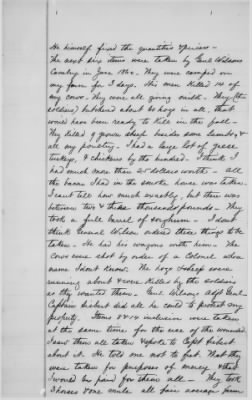 He himself fixed the quantities & prices —
The next six items were taken by Genl Wilsons
Cavalry in June 1864. They were camped on
my farm for 3 days. His men killed 14 of
my cows. They were all giving milk. They (the
soldiers) butchered about 60 hogs in all, that
would have been ready to kill in the fall —
They killed 9 grown sheep besides some lambs, &
all my poultry. I had a large lot of geese
turkeys, & chickens by the hundred. I think I
had much more than 25 dollars worth — all
the bacon I had in the smoke house was taken.
I can't tell how much exactly, but there was
between two & three thousand pounds — They
took a full barrel of sorghum — I dont
think General Wilson ordered these things to be
taken — He had his wagons with him — The
cows were shot by order of a Colonel whose
name I dont know. The hogs & sheep were
running about & were killed by the soldiers
as they wanted them. Genl Wilsons Adjt Genl
Captain did all he could to protect my
property. Items inclusive were taken
at the same time for the use of the wounded
I saw them all taken & spoke to Capt
about it. He told me not to fret. That they
were taken for purposes of & that
I would be paid for them all — They took
3 horses & one mule all fair average farm